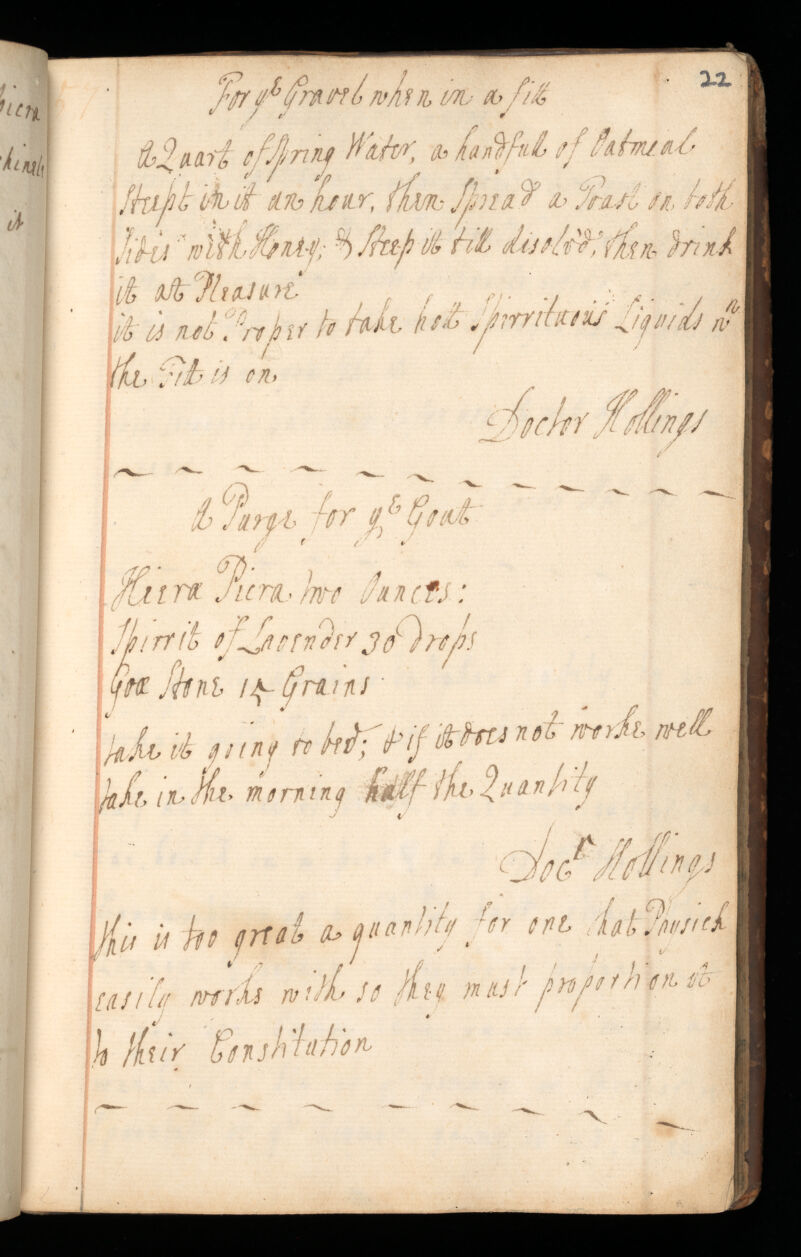 22
For yᵉ Gravel when in a fitt
A Quart of Spring Water, a handfull of Oatmeal
Steept in it an hour, then Spread a Toast on both
Sides with Honey, & Steep it till disolvd, then drink
it at Pleasure
it is not Proper to take hott Spirrituous Liquids wⁿ
the Fitt is on
Doctor Hollings
A Purge for yᵉ Gout
Hiera Picra two Ounces:
Spirrit of Lavender 30 drops
Goa Stone 15 Grains
take it going to bed; & if it does not worke well
take in the morning half the Quantity
Docʳ Hollings
this is too great a quantity for one that Physick
easily works with so they must proportion it
to their Constitution
picra
it